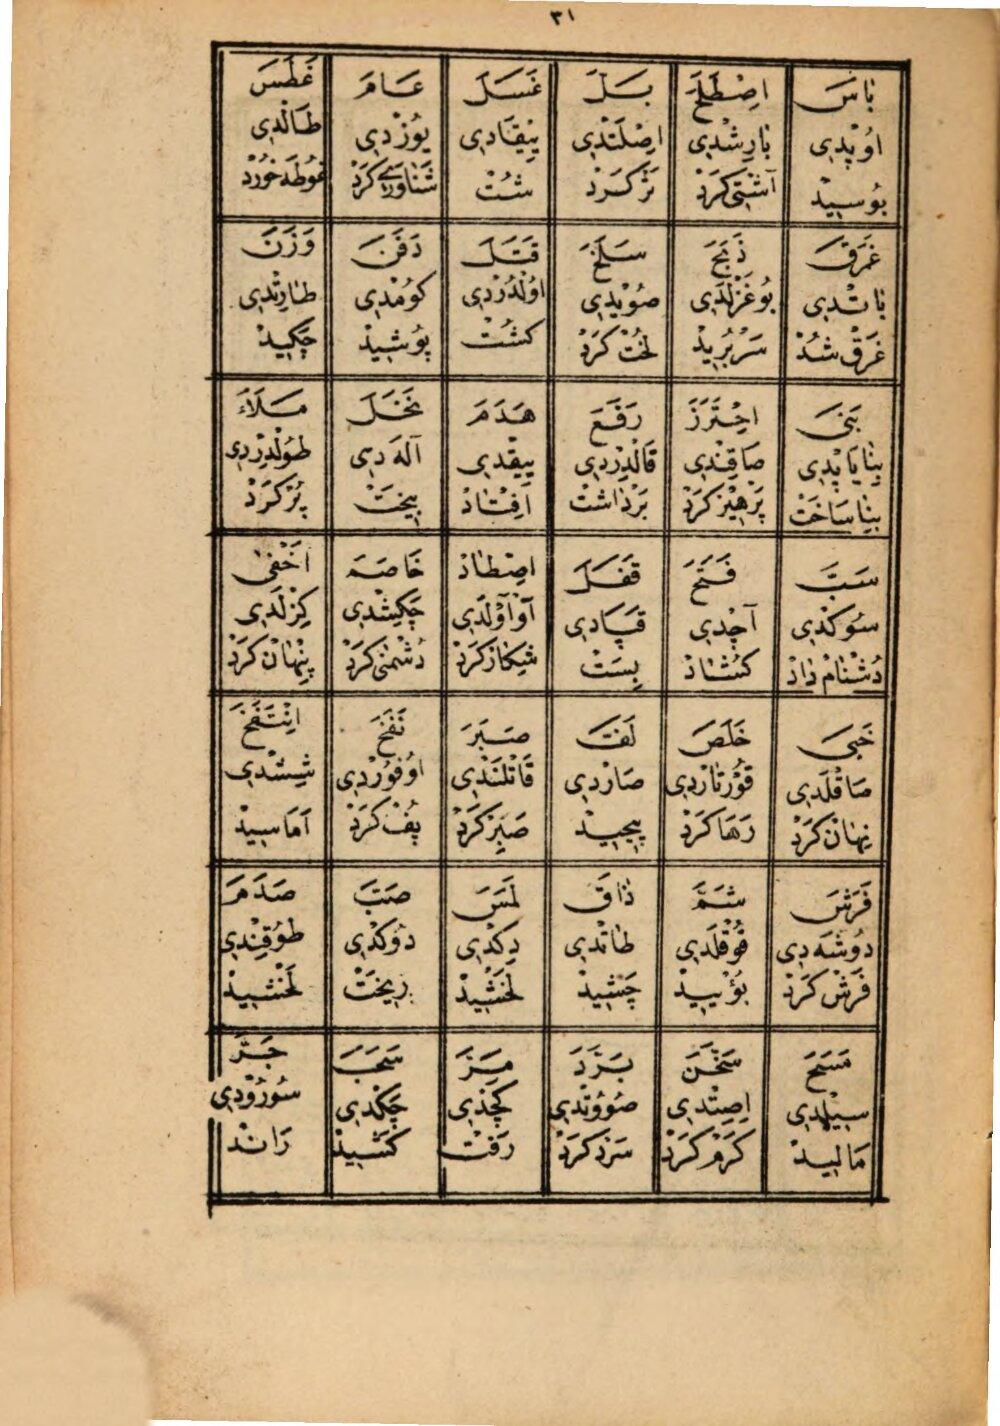 ٣١
بَاسَ
اوُپْدِي
بُوسِيدْ
اِصْطَلَحَ
بَارِشْدِي
آشْتِي كَرَدْ
بَلَّ
اِصْلَتْدِي
تَرْ كَرَدْ
غَسَلَ
يِيقَادِي
شُسْتْ
عَامَ
يُوزْدِي
شَنَاوَرِي كَرَدْ
غَطَسَ
طَالْدِي
غُوطَه خُورْدْ
غَرَقَ
بَاتْدِي
غَرَقْ شُدْ
ذَبَحَ
بُوغَزْلَدِي
سَرْ بُرِيدْ
سَلَخَ
صُويْدِي
لُخْتْ كَرَدْ
قَتَلَ
اوُلْدُرْدِي
كُشْتْ
دَفَنَ
كُومْدِي
پُوشِيدْ
وَزَنَ
طَارِتْدِي
چَكِيدْ
بَنَى
بِنَا يَاپْدِي
بِنَا سَاخَتْ
اِحْتَرَزَ
صَاقِنْدِي
پَرْهِيزْ كَرَدْ
رَفَعَ
قَالْدِرْدِي
بَرْدَاشْتْ
هَدَمَ
يِيقْدِي
اُفْتَادْ
نَخَلَ
اَلَه دِي
بِيخَتْ
مَلَاَءَ
طُولْدِرْدِي
پُرْ كَرَدْ
سَبَّ
سُوكْدِي
دُشْنَامْ دَادْ
فَتَحَ
آچْدِي
كُشَادْ
قَفَلَ
قَپَادِي
بَسَتْ
اِصْطَادْ
آوْ آوْلَدِي
شِكَارْ كَرَدْ
خَاصَمَ
چَكِشْدِي
دُشْمَنِي كَرَدْ
اَخْفَى
كِزْلَدِي
پِنْهَانْ كَرَدْ
خَبَى
صَاقْلَدِي
نِهَانْ كَرَدْ
خَلَصَ
قُورْتَارْدِي
رَهَا كَرَدْ
لَفَّ
صَارْدِي
پِيچِيدْ
صَبَرَ
قَاتْلَنْدِي
صَبِرْ كَرَدْ
نَفَخَ
اوُفُورْدِي
پُفْ كَرَدْ
اِنْتَفَخَ
شِيشْدِي
آمَاسِيدْ
فَرَشَ
دُوشَه دِي
فَرَشْ كَرَدْ
شَمَّ
قُوقْلَدِي
بُويِيدْ
ذَاقَ
طَاتْدِي
چَشِيدْ
لَمَسَ
دِكْدِي
لَخْشِيدْ
صَبَّ
دُوكْدِي
رِيخَتْ
صَدَمَ
طُوقِنْدِي
لَخْشِيدْ
مَسَحَ
سِيلْدِي
مَالِيدْ
سَخَنَ
اِصِتْدِي
كَرَمْ كَرَدْ
بَرَّدَ
صُوُوتْدِي
سَرَدْ كَرَدْ
مَرَّ
كَچْدِي
رَفَتْ
سَحَبَ
چَكْدِي
كَشِيدْ
جَرَّ
سُورُوْدِي
رَانْدْ